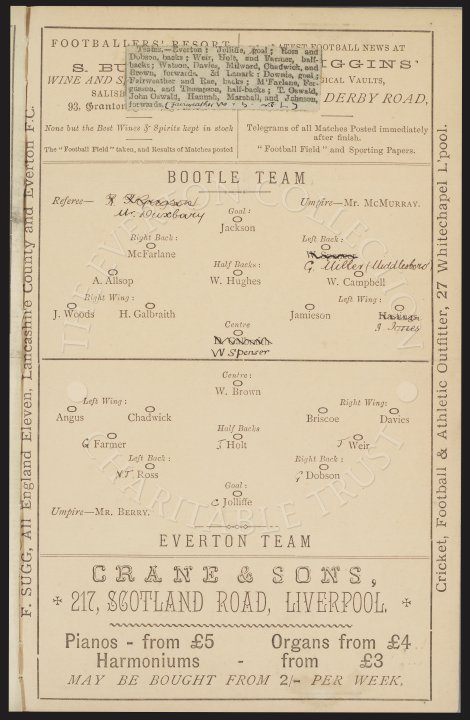 FOOTBALLERS' RESORT
S. BU
WINE AND S
SALISB
93, Granton
None but the Best Wines & Spirits kept in stock
The "Football Field" taken, and Results of Matches posted
Teams.—Everton: Jolliffe, goal; Ross and
Dobson, backs; Weir, Holt, and Farmer, half-
backs; Watson, Davies, Milward, Chadwick, and
Brown, forwards. 3d Lanark: Downie, goal;
Fairweather and Rae, backs; M'Farlane, Fer-
guson, and Thompson, half-backs; T. Oswald,
John Oswald, Hannah, Marshall, and Johnson,
forwards.
LATEST FOOTBALL NEWS AT
IGGINS'
GICAL VAULTS,
DERBY ROAD,
Telegrams of all Matches Posted immediately
after finish.
"Football Field" and Sporting Papers.
BOOTLE TEAM
Referee—
Mr. Duxbury
Umpire—MR. MCMURRAY.
Goal:
Jackson
Right Back:
McFarlane
Left Back:
G. Miller (Middlesboro)
Half Backs:
A. Allsop
W. Hughes
W. Campbell
Right Wing:
Left Wing:
J. Woods
H. Galbraith
Jamieson
Hastings
J Jones
Centre
W Spenser
Centre:
W. Brown
Left Wing:
Right Wing:
Angus
Chadwick
Briscoe
Davies
Half Backs
G Farmer
J Holt
J Weir
Left Back:
Right Back:
N J Ross
G Dobson
Goal:
C Jolliffe
Umpire—MR. BERRY.
EVERTON TEAM
CRANE & SONS,
217, SCOTLAND ROAD, LIVERPOOL.
Pianos - from £5
Organs from £4
Harmoniums - from £3
MAY BE BOUGHT FROM 2/- PER WEEK.
F. SUGG, All England Eleven, Lancashire County and Everton F.C.
Cricket, Football & Athletic Outfitter, 27 Whitechapel L'pool.
THE EVERTON COLLECTION
CHARITABLE TRUST